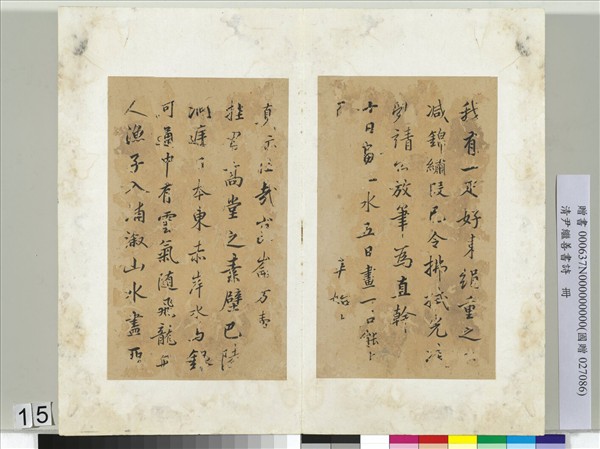 我有一疋好東絹重之不
減錦繡段已令拂拭光凌
亂請公放筆為直幹
十日畫一水五日畫一石能事
真跡壯哉崑崙方壺
挂君高堂之素壁巴陵
洞庭日本東赤岸水与銀
河通中有雲氣隨飛龍舟
人漁子入浦漵山水盡亞
贈書 000637N000000000(國贈 027086)
清尹繼善書詩 冊
15